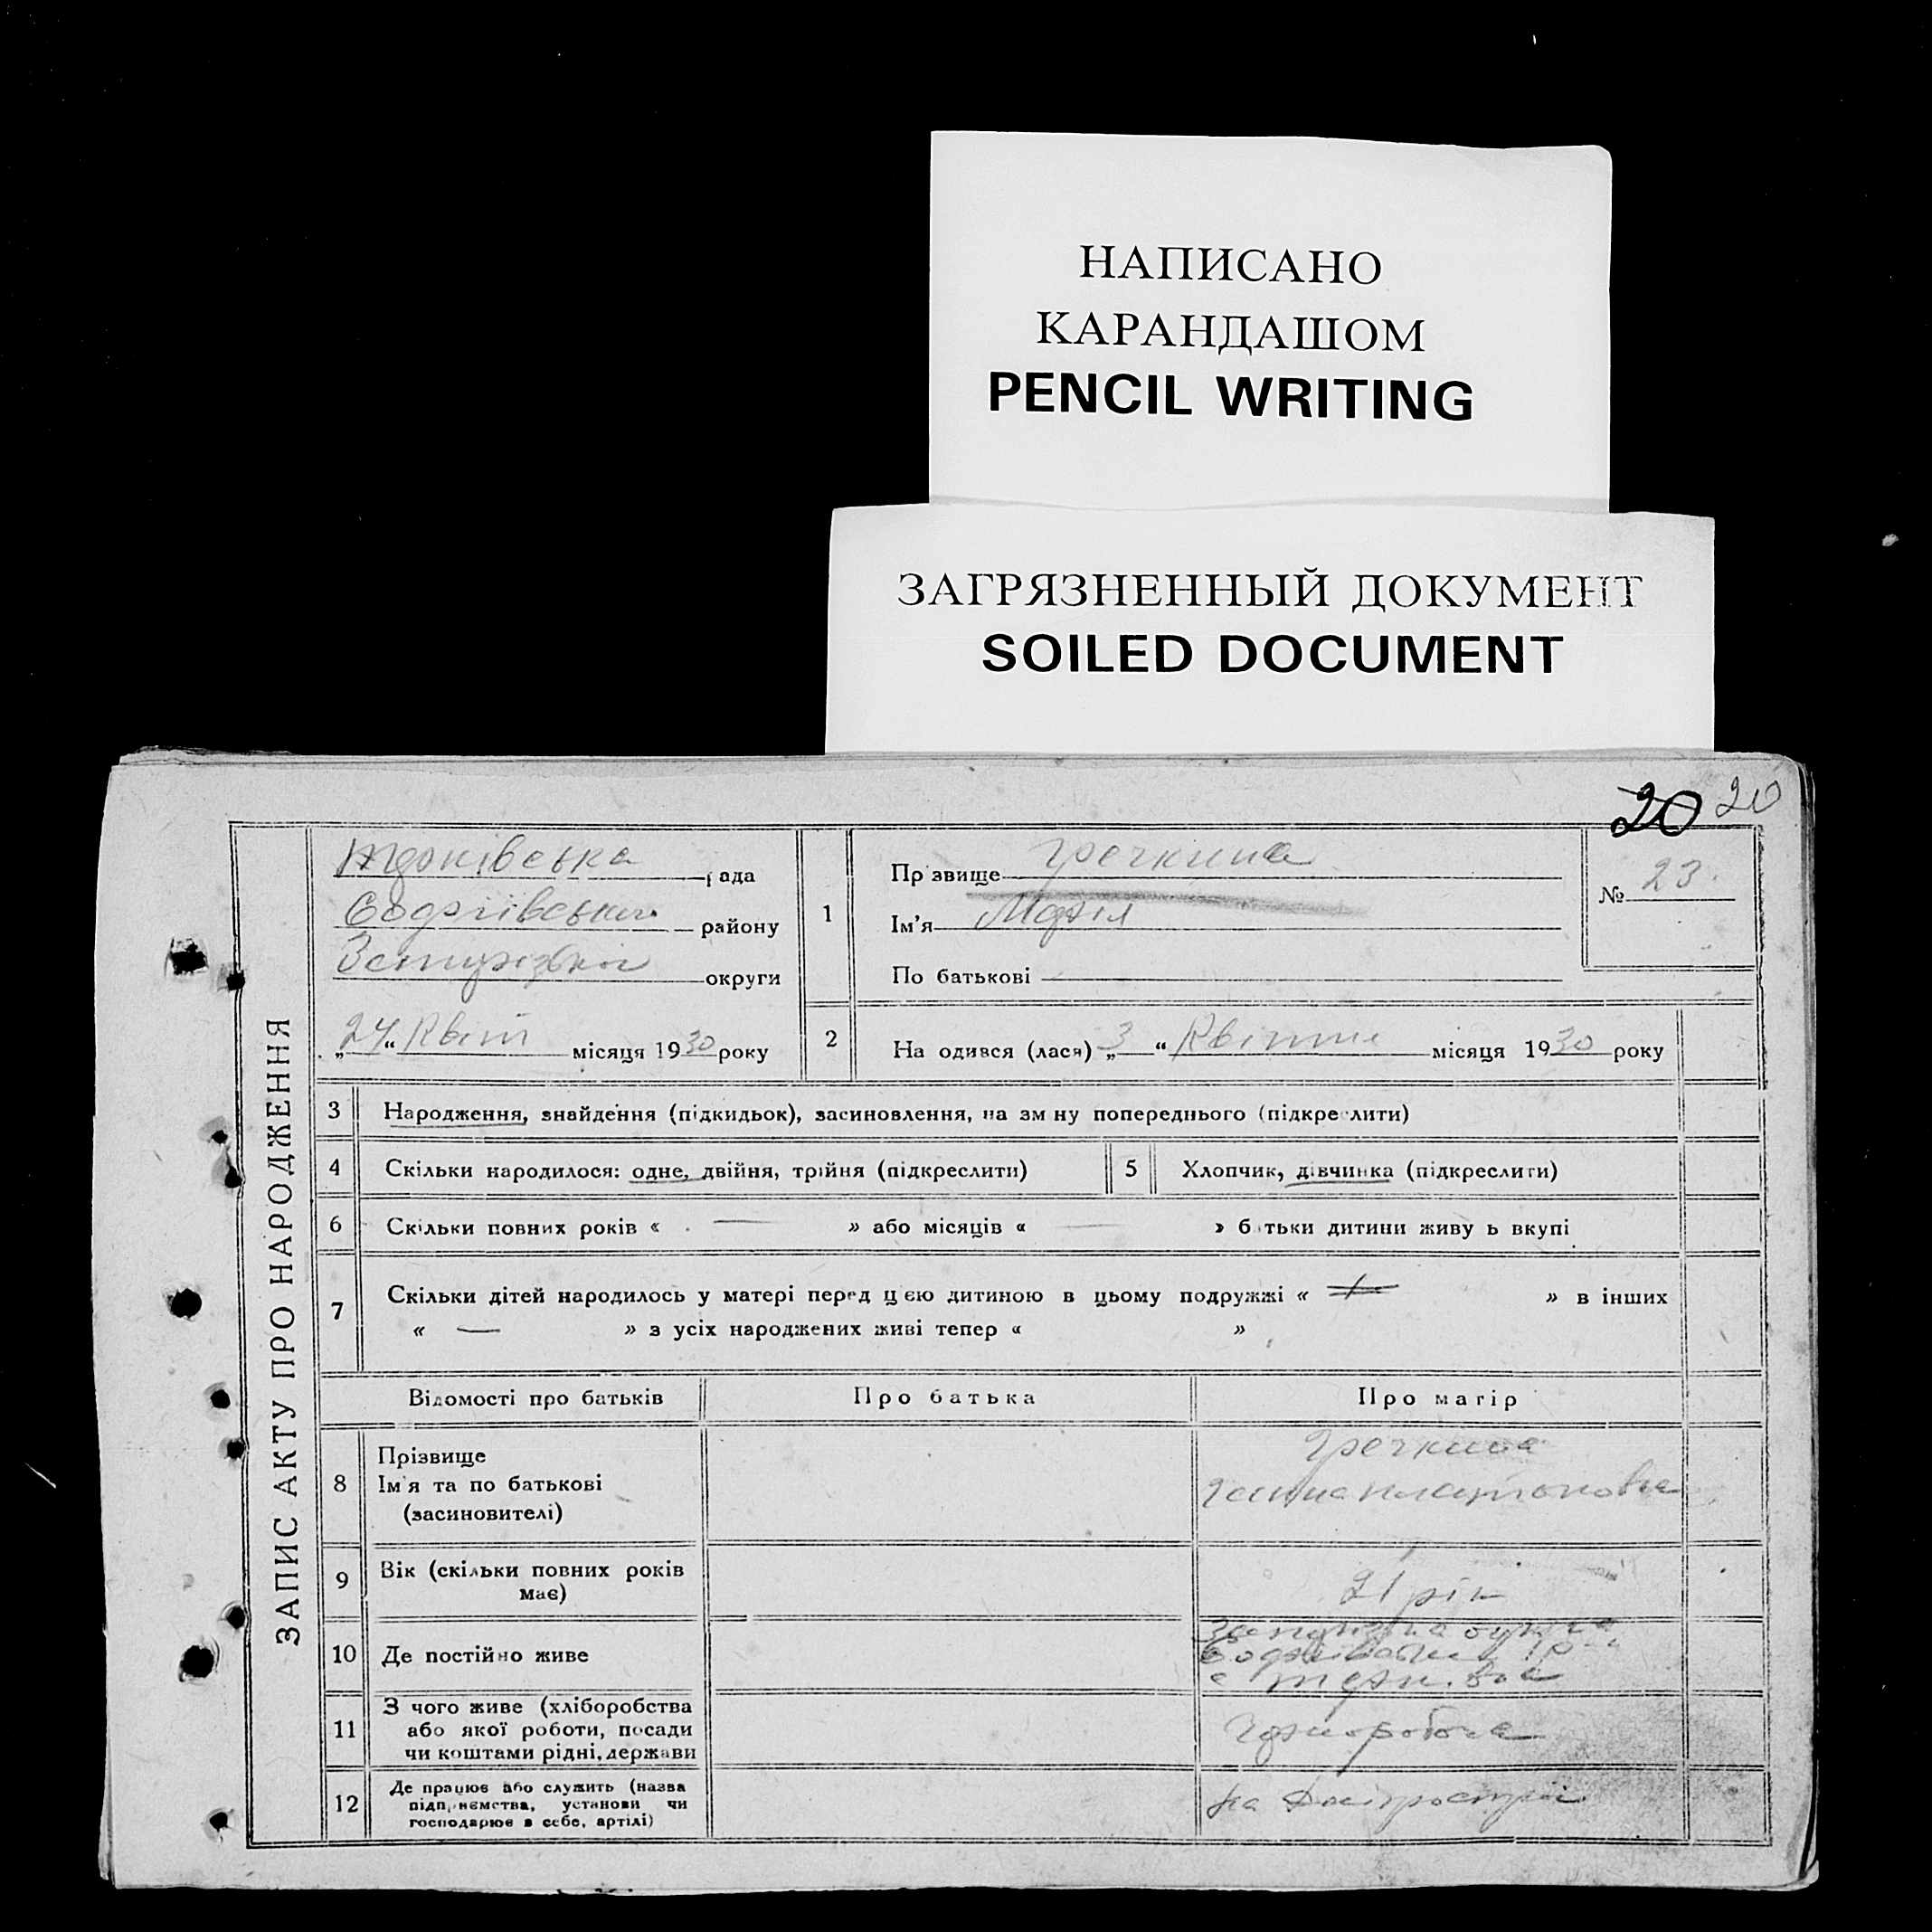 НАПИСАНО
КАРАНДАШОМ
PENCIL WRITING
ЗАГРЯЗНЕННЫЙ ДОКУМЕНТ
SOILED DOCUMENT
20 20
ЗАПИС АКТУ ПРО НАРОДЖЕННЯ
рада
району
округи
„24“ Квіт місяця 1930 року
1
Прізвище Гречкина
Ім'я Марія
По батькові
№ 23.
2
На одився (лася) „3“ Квітня місяця 1930 року
3 Народження, знайдення (підкидьок), засиновлення, на зм ну попереднього (підкреслити)
4 Скільки народилося: одне, двійня, трійня (підкреслити)
5 Хлопчик, дівчинка (підкреслити)
6 Скільки повних років « — » або місяців « — » б тьки дитини живу ь вкупі
7 Скільки дітей народилось у матері перед цією дитиною в цьому подружжі « » в інших
« — » з усіх народжених живі тепер « »
Відомості про батьків
Про батька
Про матір
8 Прізвище
Ім'я та по батькові
(засиновителі)
Гречкина
Ганна Платоновна
9 Вік (скільки повних років
має)
21 рік
10 Де постійно живе
11 З чого живе (хліборобства
або якої роботи, посади
чи коштами рідні, держави
12 Де працює або служить (назва
підприємства, установи чи
господарює в себе, артілі)
на Дніпрострої